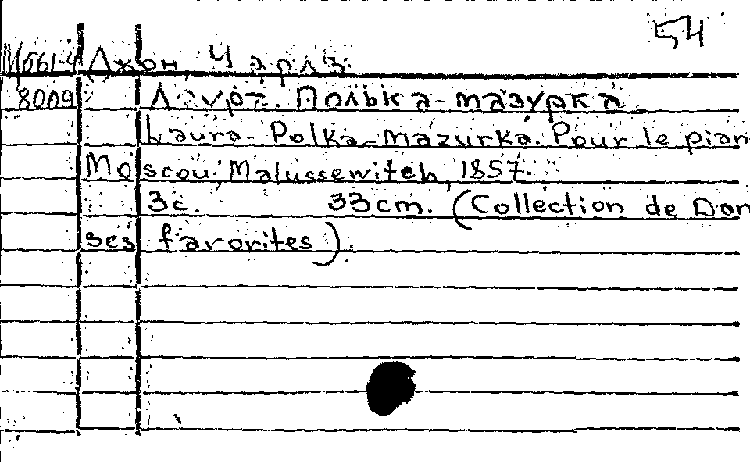 54
М061-4 Джон, Чарлз.
8009 Лаура. Полька-мазурка
Laura-Polka-mazurka. Pour le pian
Moscou, Malussewitch, 1857.
3с. 33cm. (Collection de Dan
ses favorites).